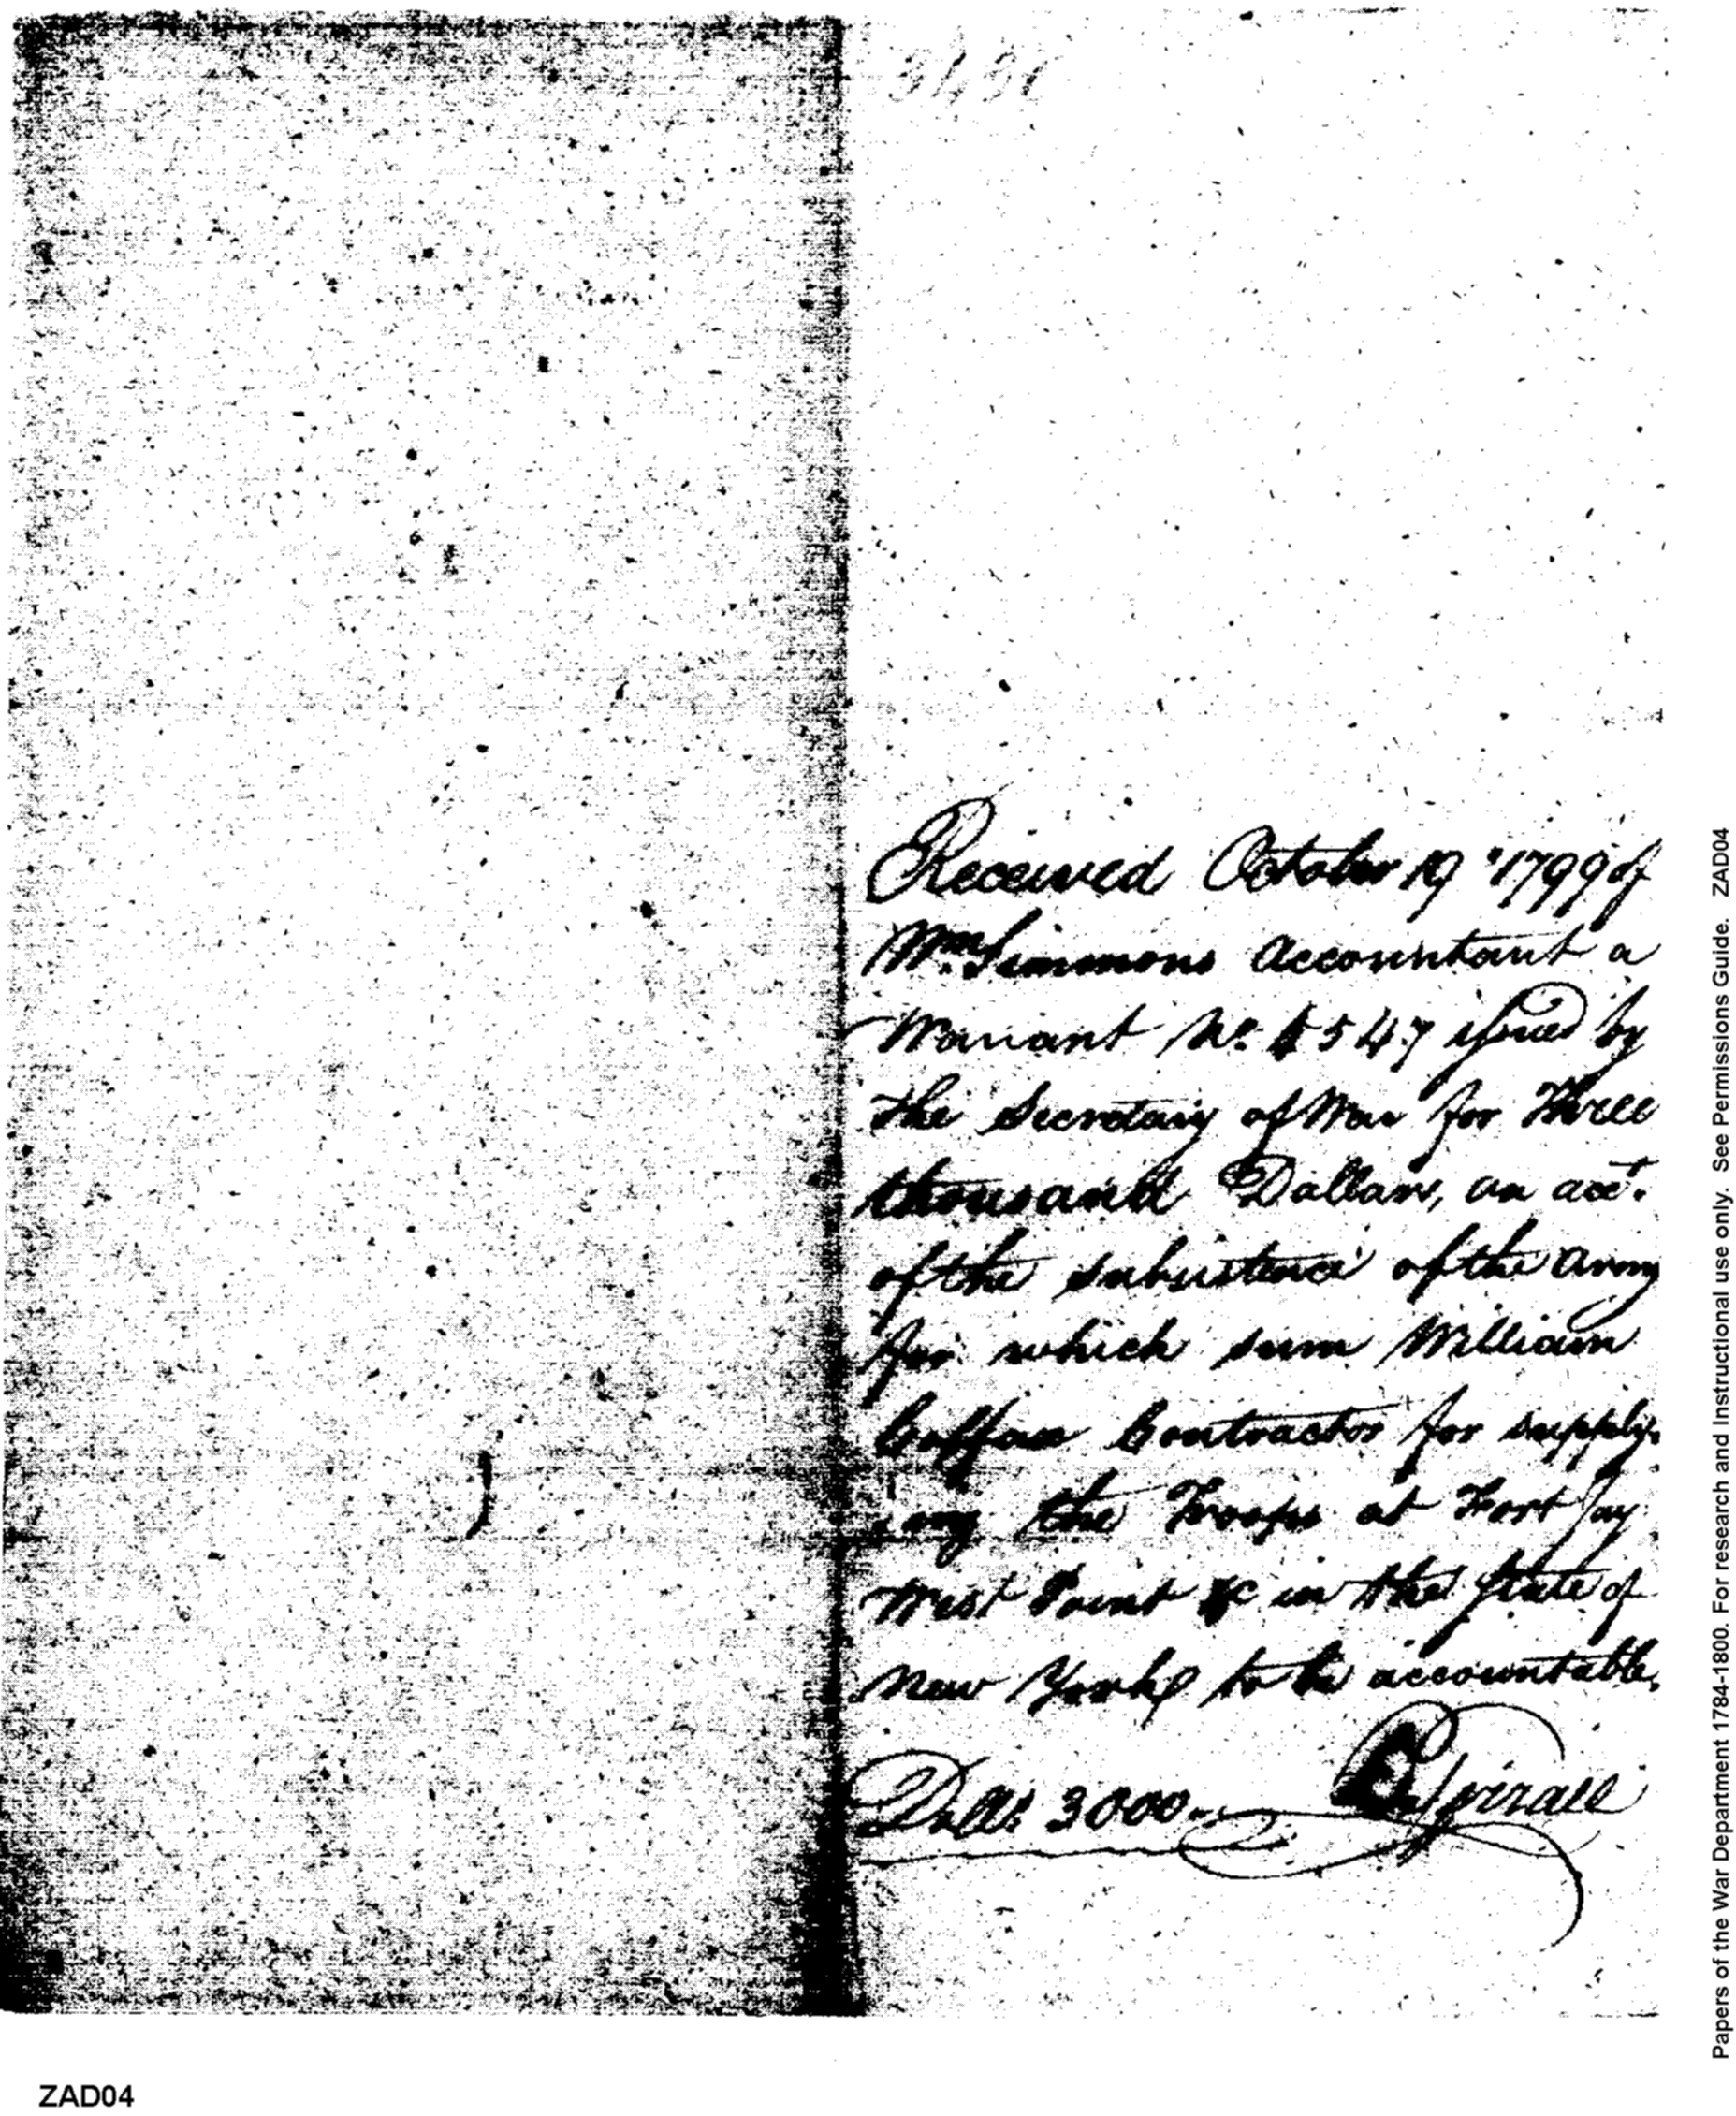 Received October 19 1799 of
Wm. Simmons Accountant a
Warrant No. 4547 issued by
the Secretary of War for Three
thousand Dollars, on acct.
of the subsistence of the Army
for which sum William
Colfax Contractor for supply-
-ing the Troops at Fort Jay
West Point &c in the State of
New York to be accountable.
Dolls. 3000.-
Papers of the War Department 1784-1800. For research and Instructional use only. See Permissions Guide. ZAD04
ZAD04